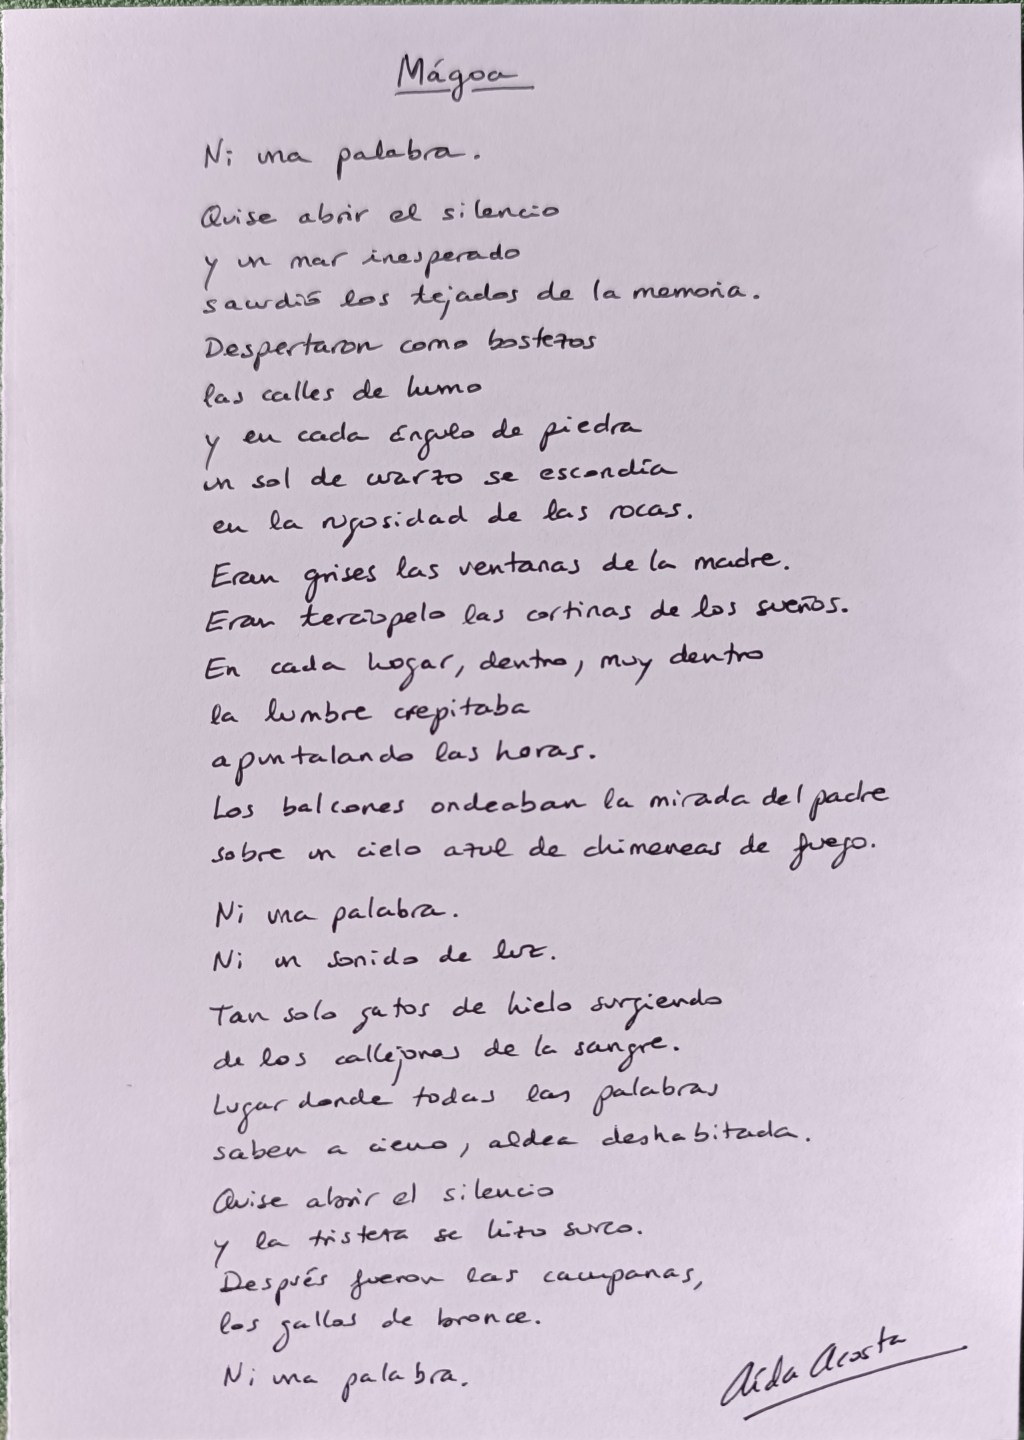 Mágoa
Ni una palabra.
Quise abrir el silencio
y un mar inesperado
sacudió los tejados de la memoria.
Despertaron como bostezos
las calles de humo
y en cada ángulo de piedra
un sol de cuarzo se escondía
en la rugosidad de las rocas.
Eran grises las ventanas de la madre.
Eran terciopelo las cortinas de los sueños.
En cada hogar, dentro, muy dentro
la lumbre crepitaba
apuntalando las horas.
Los balcones ondeaban la mirada del padre
sobre un cielo azul de chimeneas de fuego.
Ni una palabra.
Ni un sonido de luz.
Tan solo gatos de hielo surgiendo
de los callejones de la sangre.
Lugar donde todas las palabras
saben a cieno, aldea deshabitada.
Quise abrir el silencio
y la tristeza se hizo surco.
Después fueron las campanas,
los gallos de bronce.
Ni una palabra.
Aída Acosta